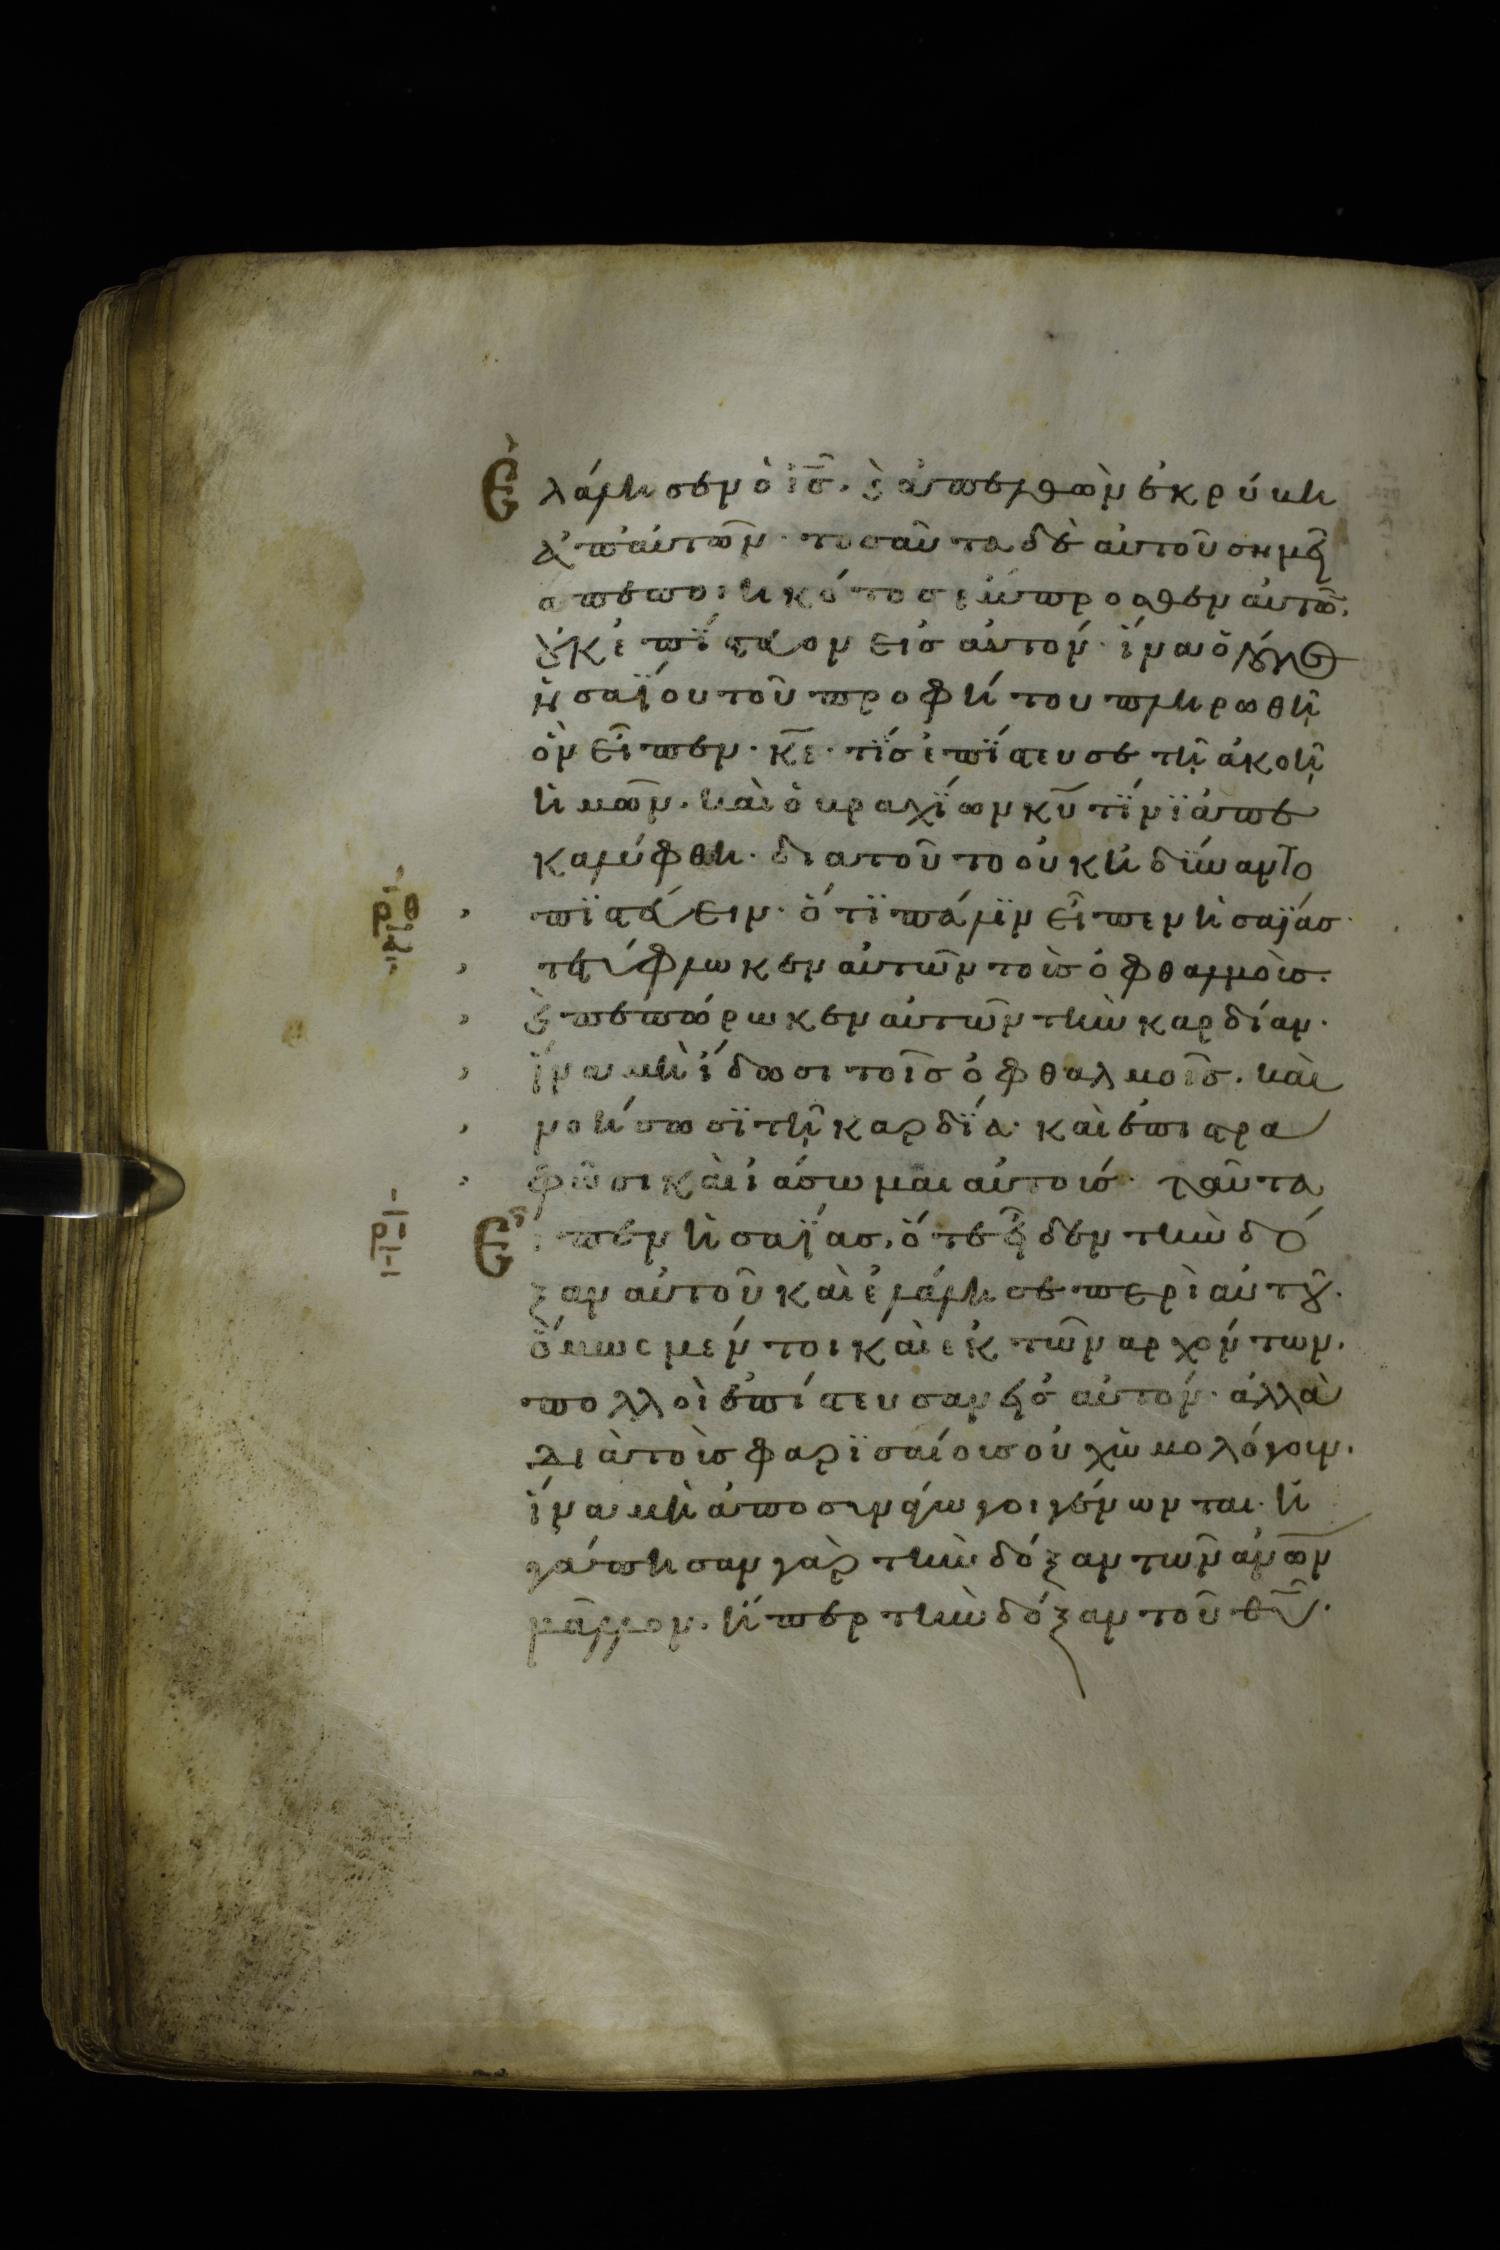 Ἐλάλησεν ὁ ις̅. κ(αὶ) ἀπελθὼν ἐκρύβη
ἀπ' αὐτῶν· τοσαῦτα δὲ αὐτοῦ σημεῖ
α πεποιηκότος ἔμπροσθεν αὐτῶ̅.
οὐκ ἐπΐστευον εἰς αὐτόν· ἵνα ὁ λόγος
ἠσαΐου τοῦ προφήτου πληρωθῆ
ὃν εἶπεν· κε̅· τΐς ἐπΐστευσε τῆ ἀκοῆ
ἡμῶν. καὶ ὁ βραχΐων κυ̅ τΐνϊ ἀπε
καλύφθη· διατοῦτο οὐκ ἠδΐυναντο
ρλθ πϊστεύειν· ὅτϊ πάλϊν εἶπεν ἠσαΐας·
δ τετύφλωκεν αὐτῶν τοὺς ὀφθαλμοὺς.
κ(αὶ) πεπώρωκεν αὐτῶν τὴν καρδίαν·
ἵνα μὴ ἴδωσι τοῖς ὀφθαλμοῖς. καὶ
νοήσωσϊ τῆ καρδΐα· καὶ ἐπιστρα
φῶσι καὶ ἰάσωμαι αὐτούς· ταῦτα
ρμ ι Εἶπεν ἠσαΐας, ὅτε εἶδεν τὴν δό
ξαν αὐτοῦ καὶ ἐλάλησε περὶ αὐτοῦ.
ὅμως μέντοι καὶ ἐκ τῶν αρχόντων.
πολλοὶ ἐπίστευσαν εἰς αὐτόν· ἀλλὰ
διὰ τοὺς φαρϊσαίους οὐχ ὡμολόγουν.
ἵνα μὴ ἀποσυνάγωγοι γένωνται· ἠ
γάπησαν γὰρ τὴν δόξαν τῶν αν̅ων
μᾶλλον. ἤπερ τὴν δόξαν τοῦ θυ̅.